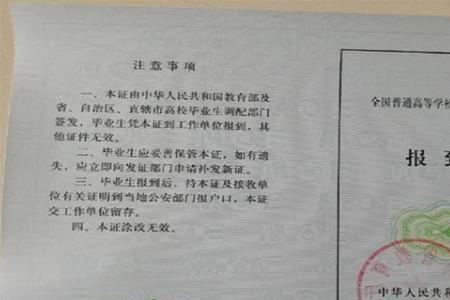 注意事项
一、本证由中华人民共和国教育部及
省、自治区、直辖市高校毕业生调配部门
签发，毕业生凭本证到工作单位报到，其
他证件无效。
二、毕业生应妥善保管本证，如有遗
失，应立即向发证部门申请补发新证。
三、毕业生报到后，持本证及接收单
位有关证明到当地公安部门报户口，本证
交工作单位留存。
四、本证涂改无效。
全国普通高等学校
报到
中华人民共和